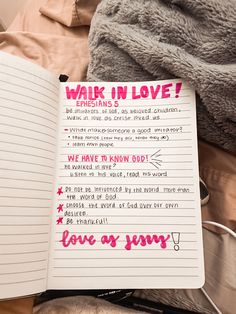 WALK IN LOVE!
EPHESIANS 5
be imitators of God, as beloved children,
walk in love as Christ loved us.
- What makes someone a good imitator?
• take notice (how they act, when they do)
• learn from people
WE HAVE TO KNOW GOD!
he walked in love
listen to his voice, read his word
★ Do not be influenced by the world more than
the word of God.
★ Choose the word of God over our own
desires.
★ Be thankful!
love as jesus!